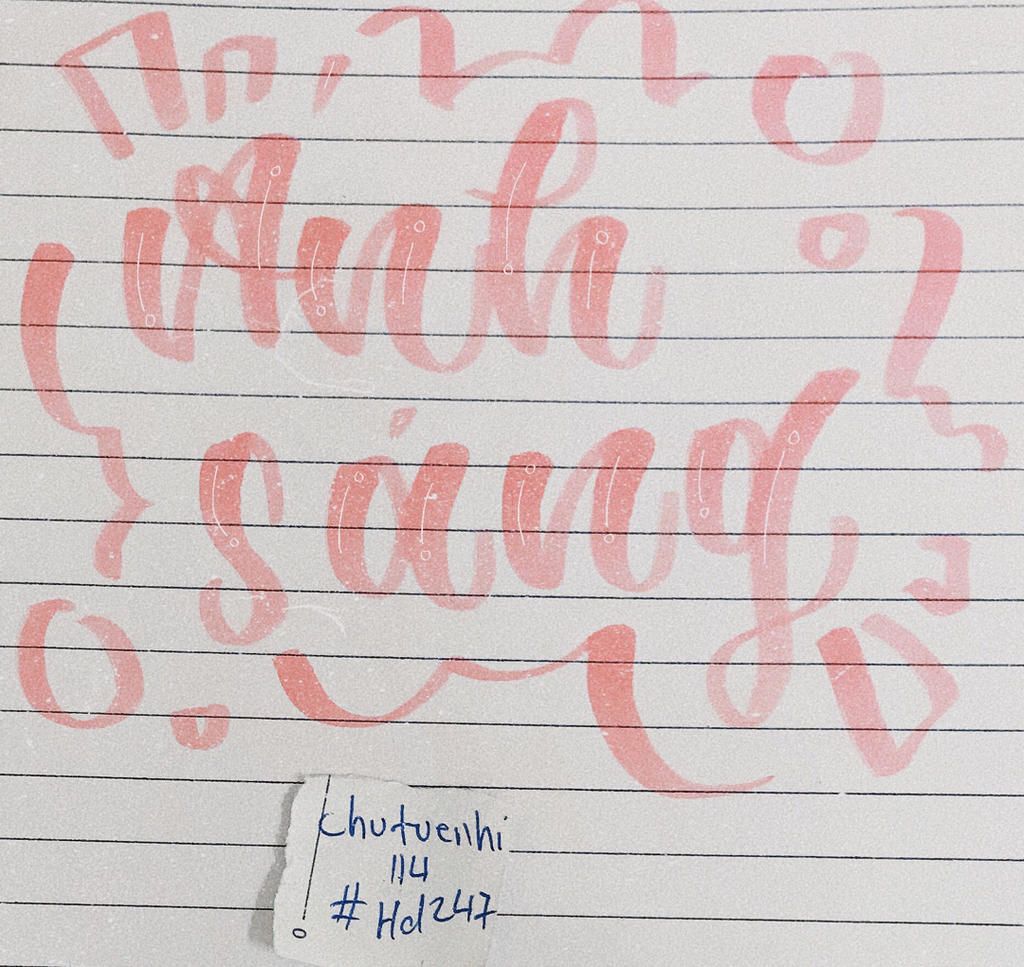 Anh
sáng
chutuenhi
114
#Hd247